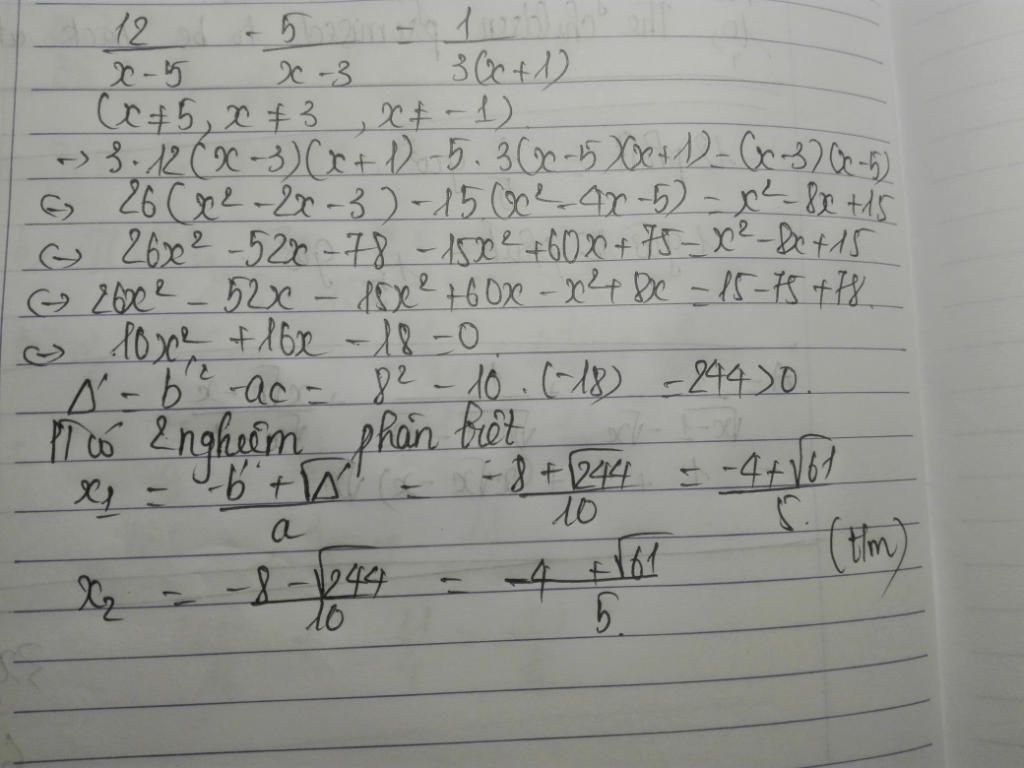 12/(x-5) - 5/(x-3) = 1/(3(x+1))
(x≠5, x≠3, x≠-1)
→ 3.12(x-3)(x+1) - 5.3(x-5)(x+1) = (x-3)(x-5)
↔ 26(x² -2x-3) -15(x²-4x-5) = x²-8x+15
↔ 26x² -52x -78 -15x²+60x+75 = x²-8x+15
↔ 26x² - 52x - 15x²+60x - x²+8x -15-75+78
↔ 10x² +16x -18 = 0
Δ' = b'² -ac = 8² - 10.(-18) = 244 > 0.
PT có 2 nghiệm phân biệt
x₁ = (-b' + √Δ')/a = (-8 + √244)/10 = (-4+√61)/5.
(t/m)
x₂ = (-8 - √244)/10 = (-4 + √61)/5.